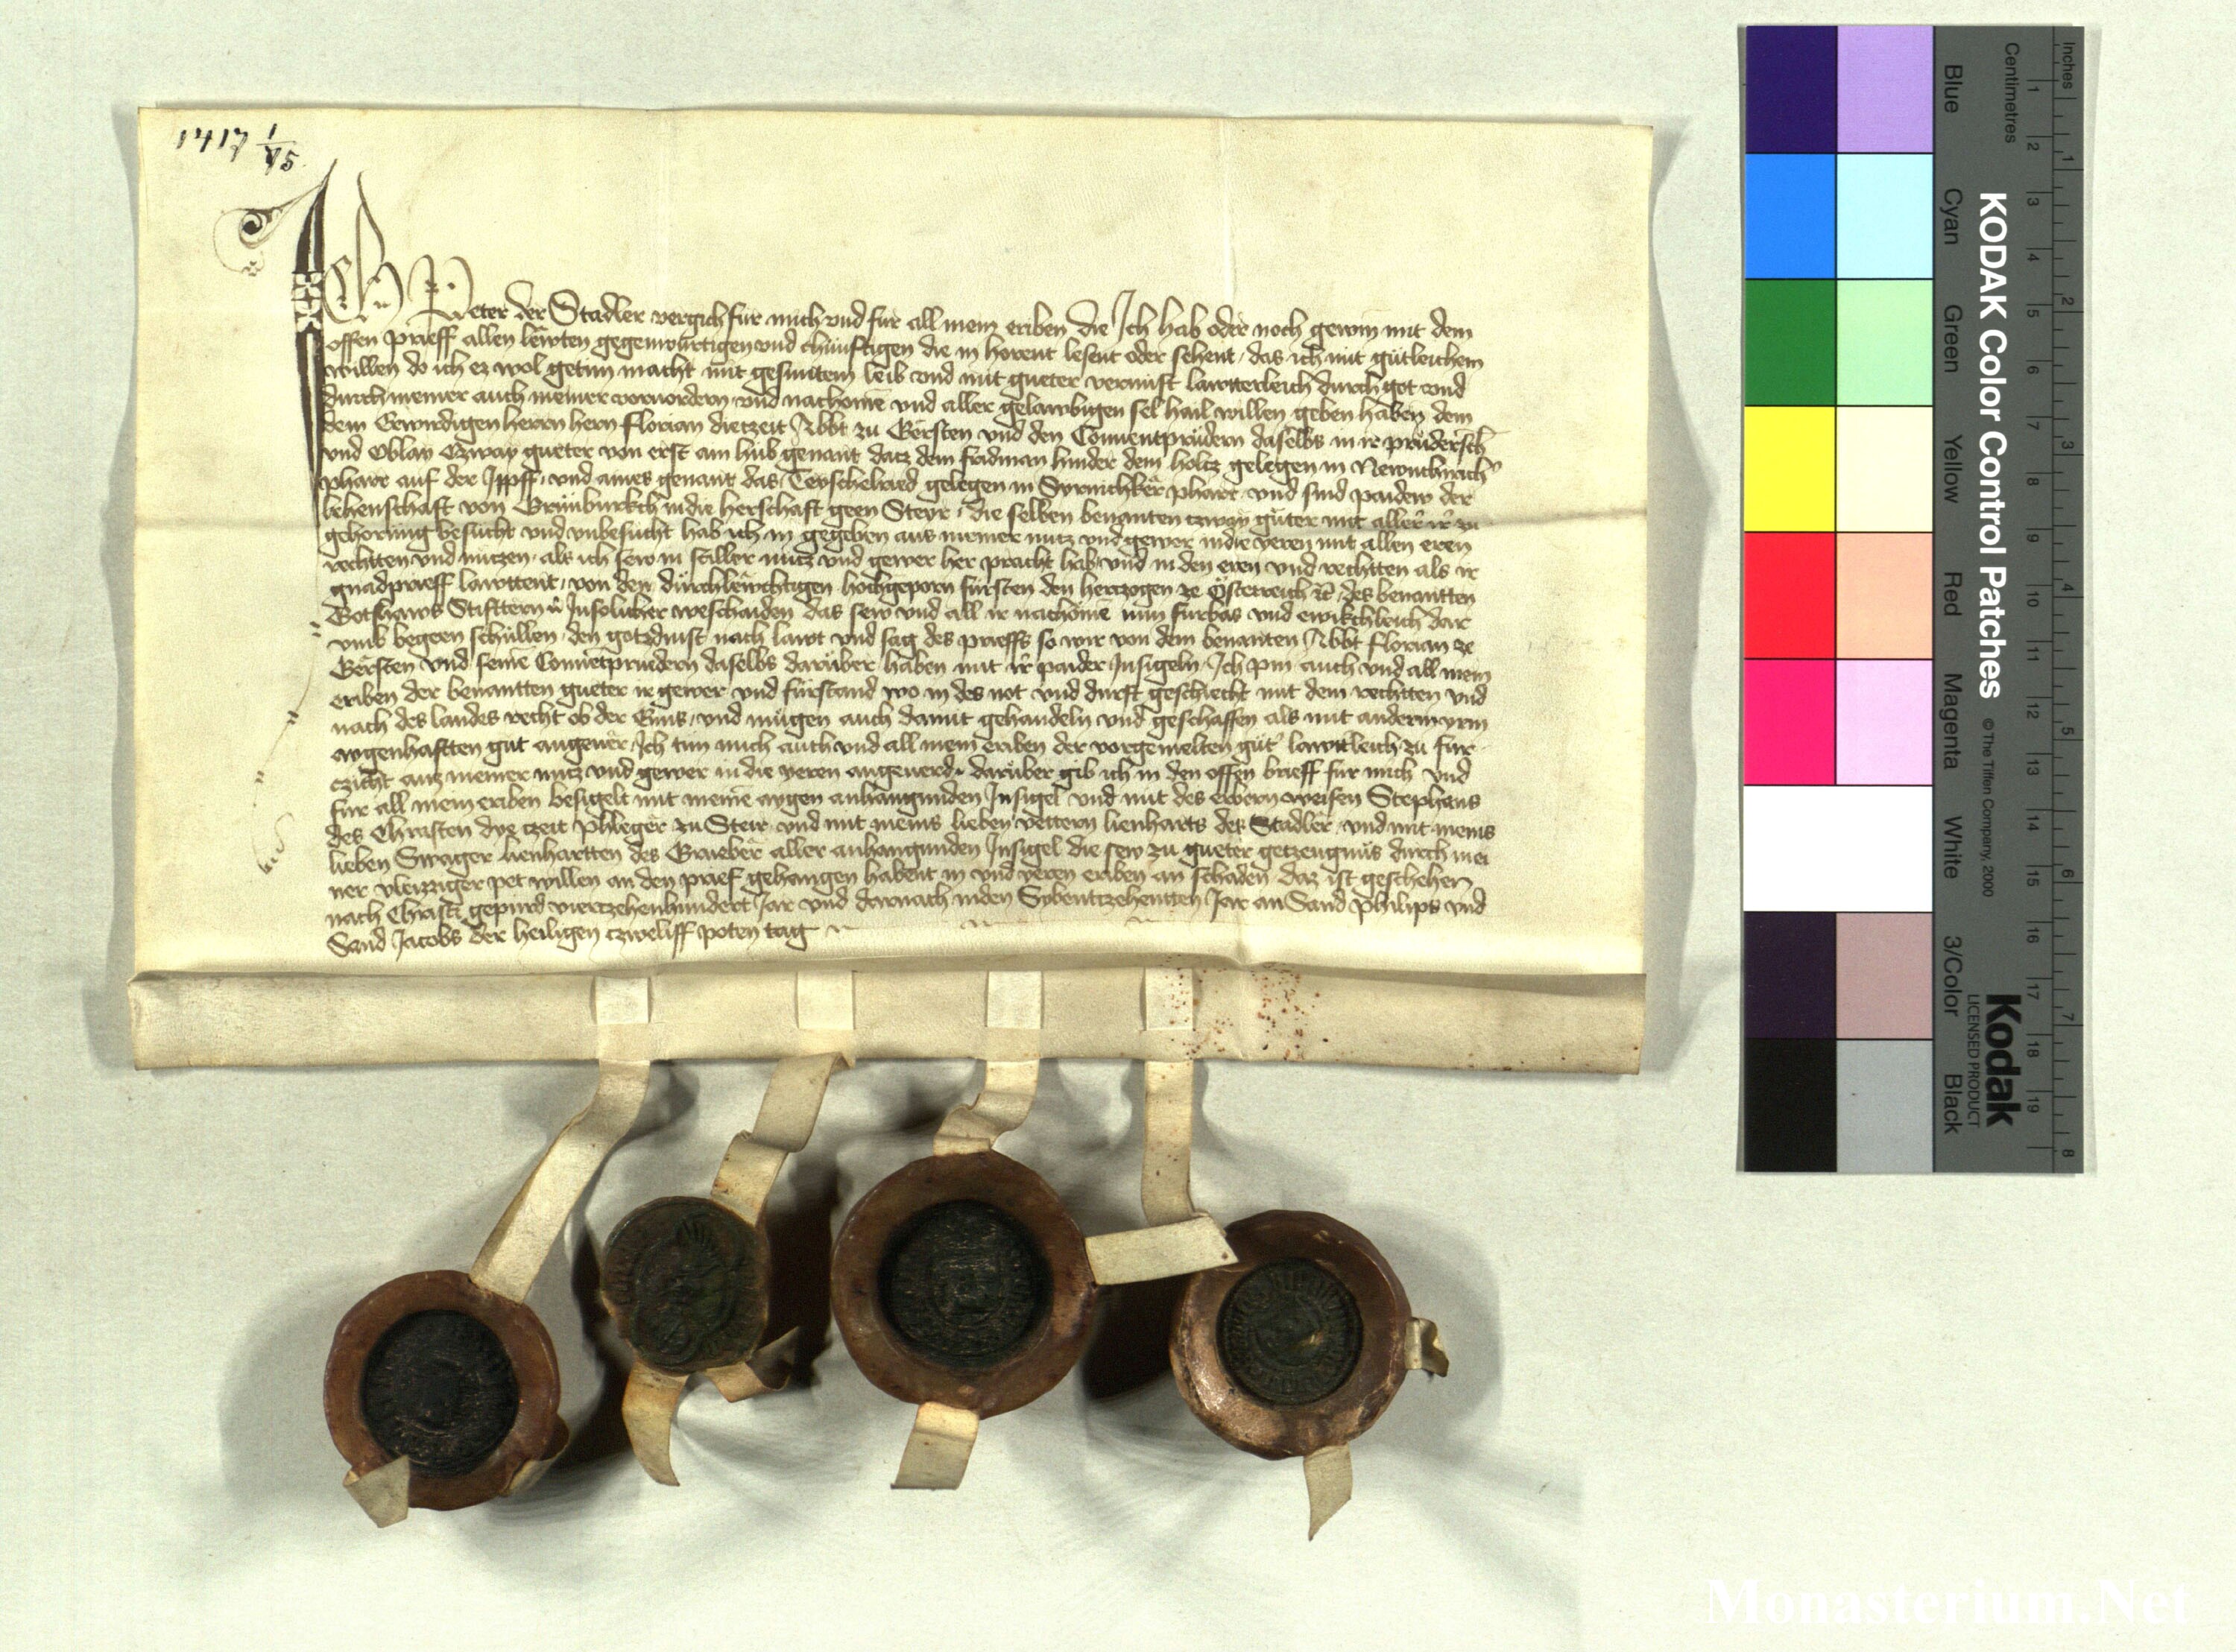 1417 1/V5
ICh Peter der Stadler vergich fur mich vnd fur all mein eriben die Ich hab oder noch gewin mit dem
offen praeff allen lewten gegenwurtigen vnd chunftigen die in horent lesent oder sehent, das ich mit gutleichem
willen do ich ez wol getun macht mit gesuntem leib vnd mit gueter vernunft lawterleich durch got vnd
durch meiner auch meiner voruordern vnd nachome vnd aller gelawbigen sel hail willen geben haben dem
dem Erwirdigen herrn hern Florian dietzeit Abbt zu Gersten vnd den Conuentprudern daselbs in ir prudersch
vnd Oblay Czway gueter von erst ain hub genant datz dem hinder dem holtz gelegen in
pharr auf der Ippff, vnd aines genant das gelegen in pharr, vnd sind paidew der
lehenschaft von Grunburckch in die herschaft geen Steyr, die selben benanten czway guter mit aller ir zu
gehorung besucht vnd vnbesucht hab ich in gegeben aus meiner nutz vnd gewer in die yeren mit allen eren
rechtten vnd nutzen, als ich sew in stiller nutz vnd gewer her pracht hab, vnd in den eren vnd rechtten als ir
gnadpraeff lawttent, von den durchlewchtigen hochgeporn fursten den hertzogen ze Osterreich etc des benantten
Gotshaws Stifttern Insolicher weschaiden das sew vnd all ir nachome nun furbas vnd ewikchleich dar
vmb begeen schullen, den gotzdinst nach lawt vnd sag des praeffs so wir von dem benanten Abbt Florian ze
Gersten vnd seine Conuetprudern daselbs daruber haben mit ir paider Insigeln, Ich pin auch vnd all mein
eriben der benantten gueter ir gewer vnd furstand wo in des not vnd durft geschiecht mit dem rechtten vnd
nach des landes recht ob der Enns, vnd mugen auch damit gehandeln vnd geschaffen als mit anderm irm
aygenhaftten gut angeuer, Ich tun mich auch vnd all mein eriben der vorgemelten gut lawtterleich zu fur
czicht auz meiner nutz vnd gewer in die yeren angeuerd, daruber gib ich in den offen brieff fur mich vnd
fur all mein eriben besigelt mit meine aygen anhangunden Insigel vnd mit des erbern weisen Stephans
des Chrafften dye tzeit Phleger zu Steir vnd mit meins lieben vettern lienharts des Stadler, vnd mit meins
lieben Swager lienhartten des Grueber aller anhangunden Insigel die sew zu gueter getzeugnus durch mei
ner vleizziger pet willen an den praef gehangen habent in vnd yeren eriben an schaden daz ist geschehen
nach Christi gepurd viertzehenhundert Jar vnd darnach in den Sybentzehentten Jar an Sand Philips vnd
Sand Jacobs der heiligen czweliff poten tag
KODAK Color Control Patches © The Tiffen Company, 2000
Kodak
LICENSED PRODUCT
Inches
Centimetres
1 2 3 4 5 6 7 8 9 10 11 12 13 14 15 16 17 18 19
1 2 3 4 5 6 7 8
Blue
Cyan
Green
Yellow
Red
Magenta
White
3/Color
Black
Monasterium.Net